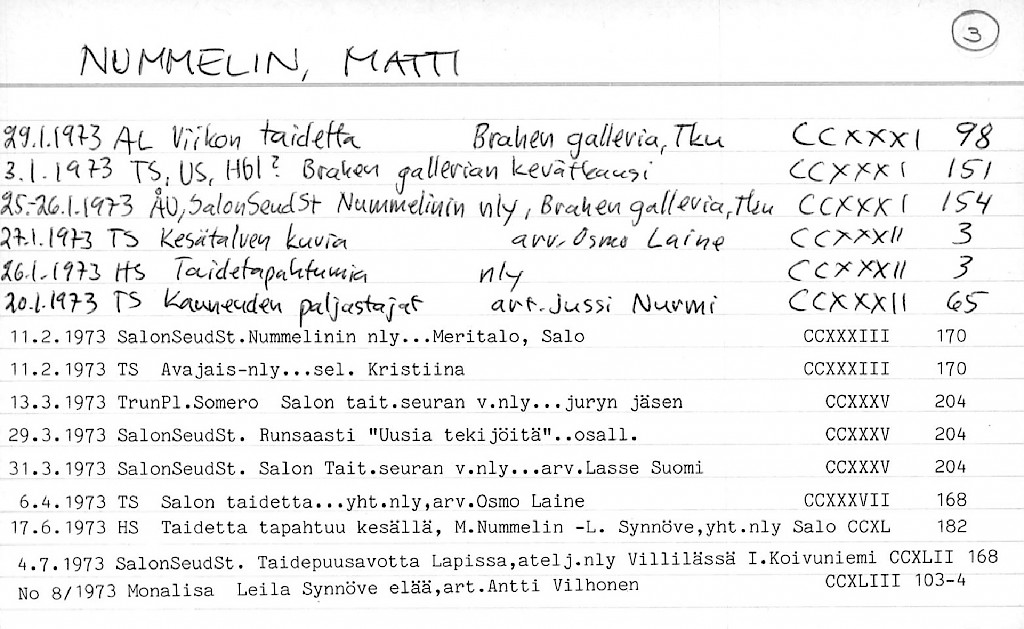 3
NUMMELIN, MATTI
29.1.1973 AL Viikon taidetta Brahen galleria, Tku CCXXXI 98
3.1.1973 TS, US, Hbl? Brahen gallerian kevätkausi CCXXXI 151
25.-26.1.1973 ÅU, SalonSeudSt Nummelinin nly, Brahen galleria, Tku CCXXXI 154
27.1.1973 TS Kesätalven kuvia arv. Osmo Laine CCXXXII 3
26.1.1973 HS Taidetapahtumia nly CCXXXII 3
20.1.1973 TS Kauneuden paljastajat art. Jussi Nurmi CCXXXII 65
11.2.1973 SalonSeudSt.Nummelinin nly...Meritalo, Salo CCXXXIII 170
11.2.1973 TS Avajais-nly...sel. Kristiina CCXXXIII 170
13.3.1973 TrunPl.Somero Salon tait.seuran v.nly...juryn jäsen CCXXXV 204
29.3.1973 SalonSeudSt. Runsaasti "Uusia tekijöitä"..osall. CCXXXV 204
31.3.1973 SalonSeudSt. Salon Tait.seuran v.nly...arv.Lasse Suomi CCXXXV 204
6.4.1973 TS Salon taidetta...yht.nly,arv.Osmo Laine CCXXXVII 168
17.6.1973 HS Taidetta tapahtuu kesällä, M.Nummelin -L. Synnöve,yht.nly Salo CCXL 182
4.7.1973 SalonSeudSt. Taidepuusavotta Lapissa,atelj.nly Villilässä I.Koivuniemi CCXLII 168
No 8/1973 Monalisa Leila Synnöve elää,art.Antti Vilhonen CCXLIII 103-4